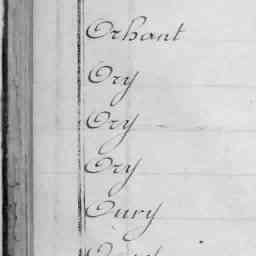 Orhant
Ory
Ory
Ory
Oury